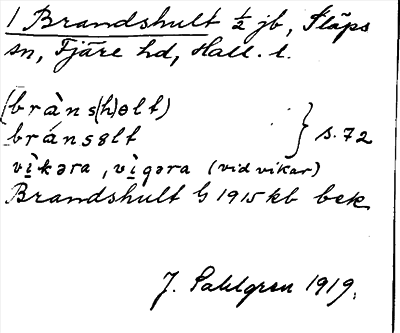 1 Brandshult ½ jb, Släps
sn, Fjäre hd, Hall. l.
(bràns(h)ɵlt)
bránsɵlt } s. 72
vı̀kəra, vı̀gəra (vid vikar)
Brandshult G 1915 kb bek
J. Sahlgren 1919.